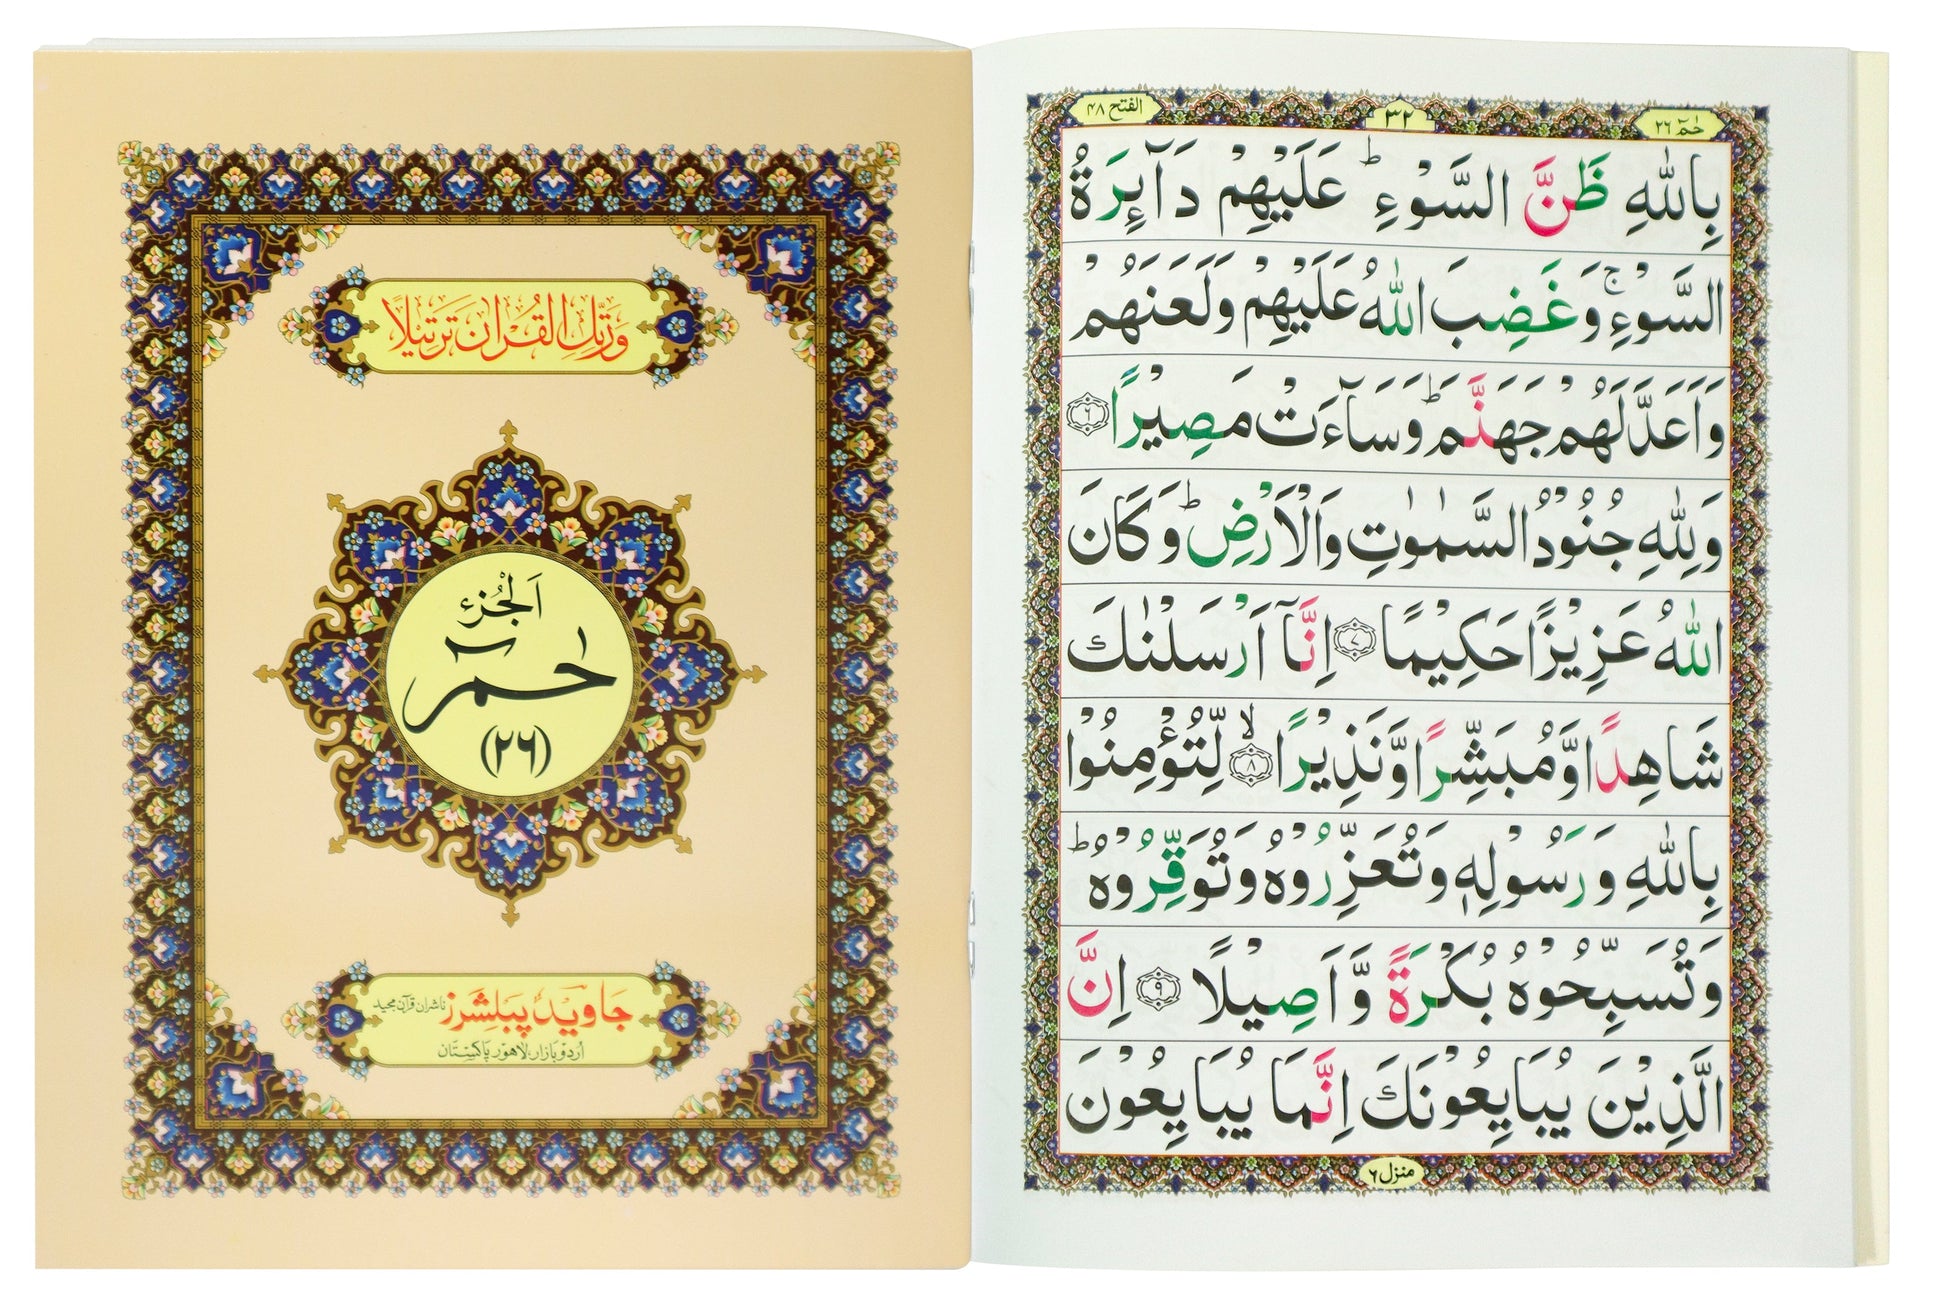 وَرَتِّلِ الْقُرْاٰنَ تَرْتِيْلًا
اَلْجُزْءُ
حٰمٓ
(۲۶)
جاوید پبلشرز ناشران قرآن مجید
اُردو بازار، لاھور پاکستان
حٰمٓ ۲۶
۳۲
الفتح ۴۸
بِاللّٰهِ ظَنَّ السَّوْءِ ؕ عَلَيْهِمْ دَآئِرَةُ
السَّوْءِ ۚ وَغَضِبَ اللّٰهُ عَلَيْهِمْ وَلَعَنَهُمْ
وَاَعَدَّ لَهُمْ جَهَنَّمَ ؕ وَسَآءَتْ مَصِيْرًا ۶
وَلِلّٰهِ جُنُوْدُ السَّمٰوٰتِ وَالْاَرْضِ ؕ وَكَانَ
اللّٰهُ عَزِيْزًا حَكِيْمًا ۷ اِنَّآ اَرْسَلْنٰكَ
شَاهِدًا وَّمُبَشِّرًا وَّنَذِيْرًا ۸ ۙ لِّتُؤْمِنُوْا
بِاللّٰهِ وَرَسُوْلِهٖ وَتُعَزِّرُوْهُ وَتُوَقِّرُوْهُ ؕ
وَتُسَبِّحُوْهُ بُكْرَةً وَّاَصِيْلًا ۹ اِنَّ
الَّذِيْنَ يُبَايِعُوْنَكَ اِنَّمَا يُبَايِعُوْنَ
منزل ۶